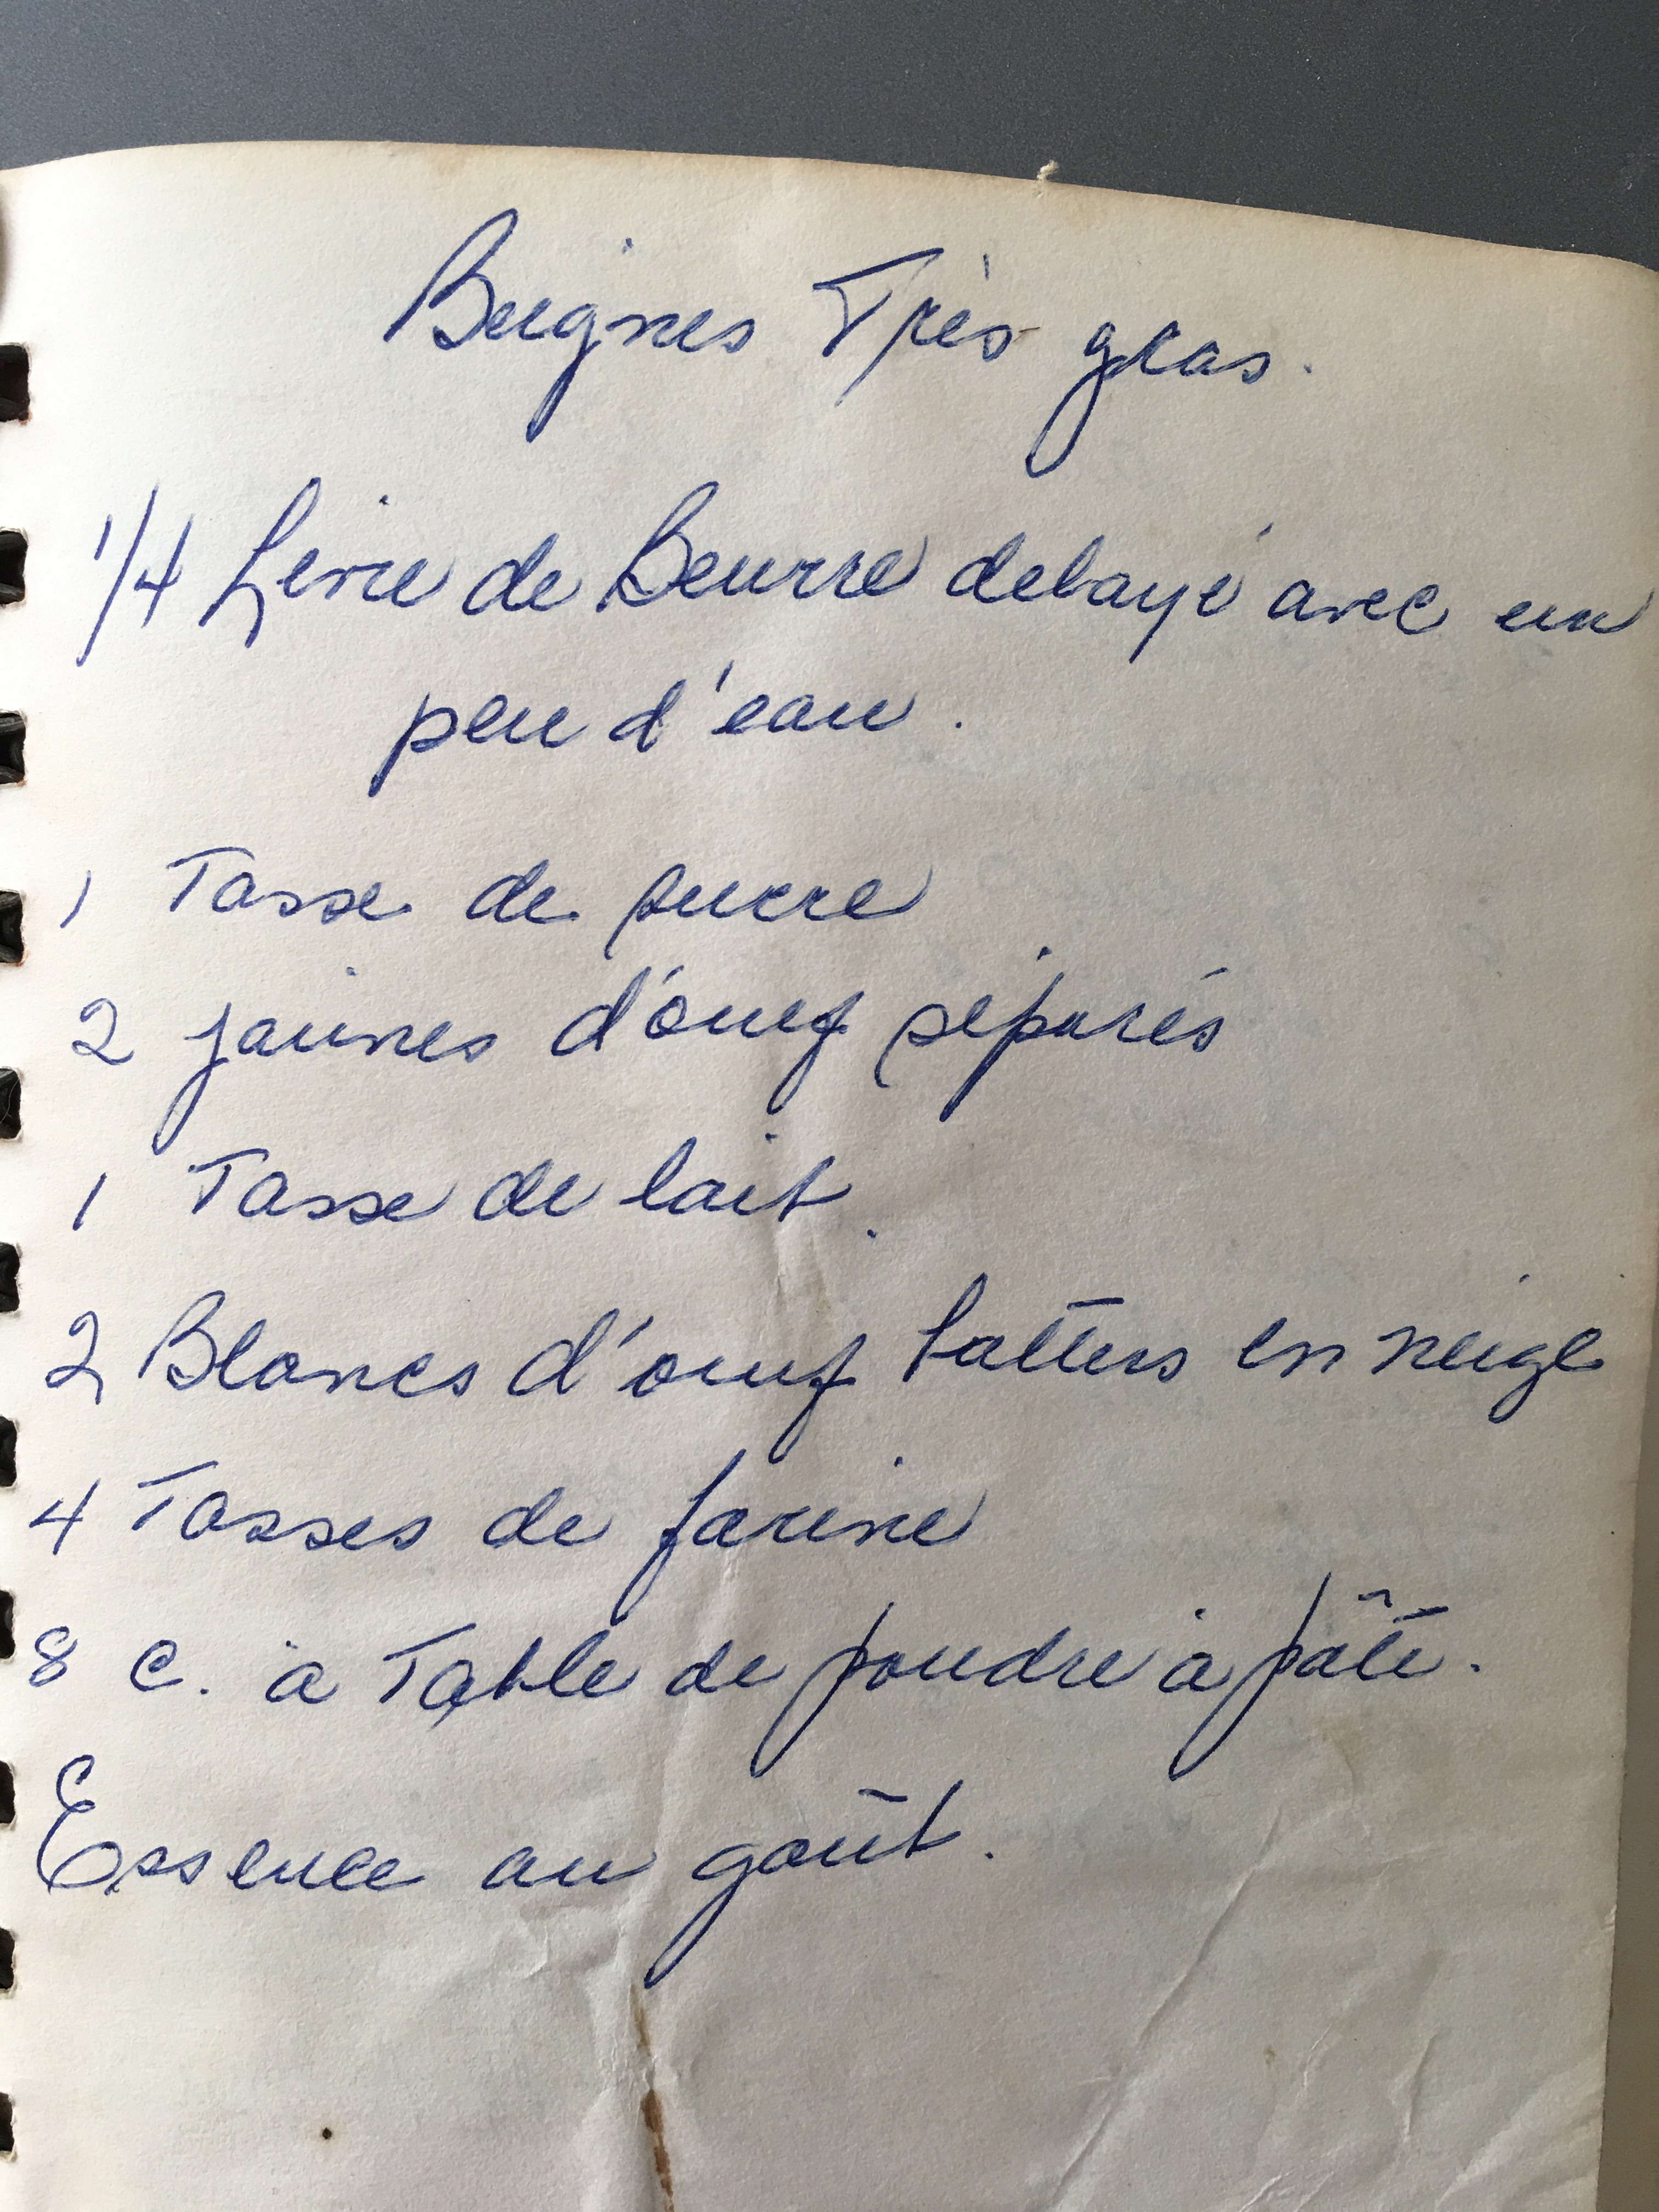 Beignes Très gras.
1/4 Livre de Beurre delayé avec un
peu d'eau.
1 Tasse de sucre
2 jaunes d'oeuf séparés
1 Tasse de lait.
2 Blancs d'oeuf batters en neige
4 Tasses de farine
8 c. à Table de poudre à pâte.
Essence au goût.